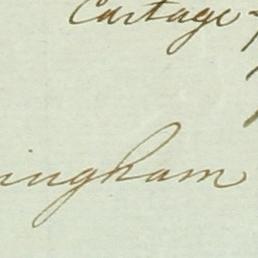 Cartage
ingham